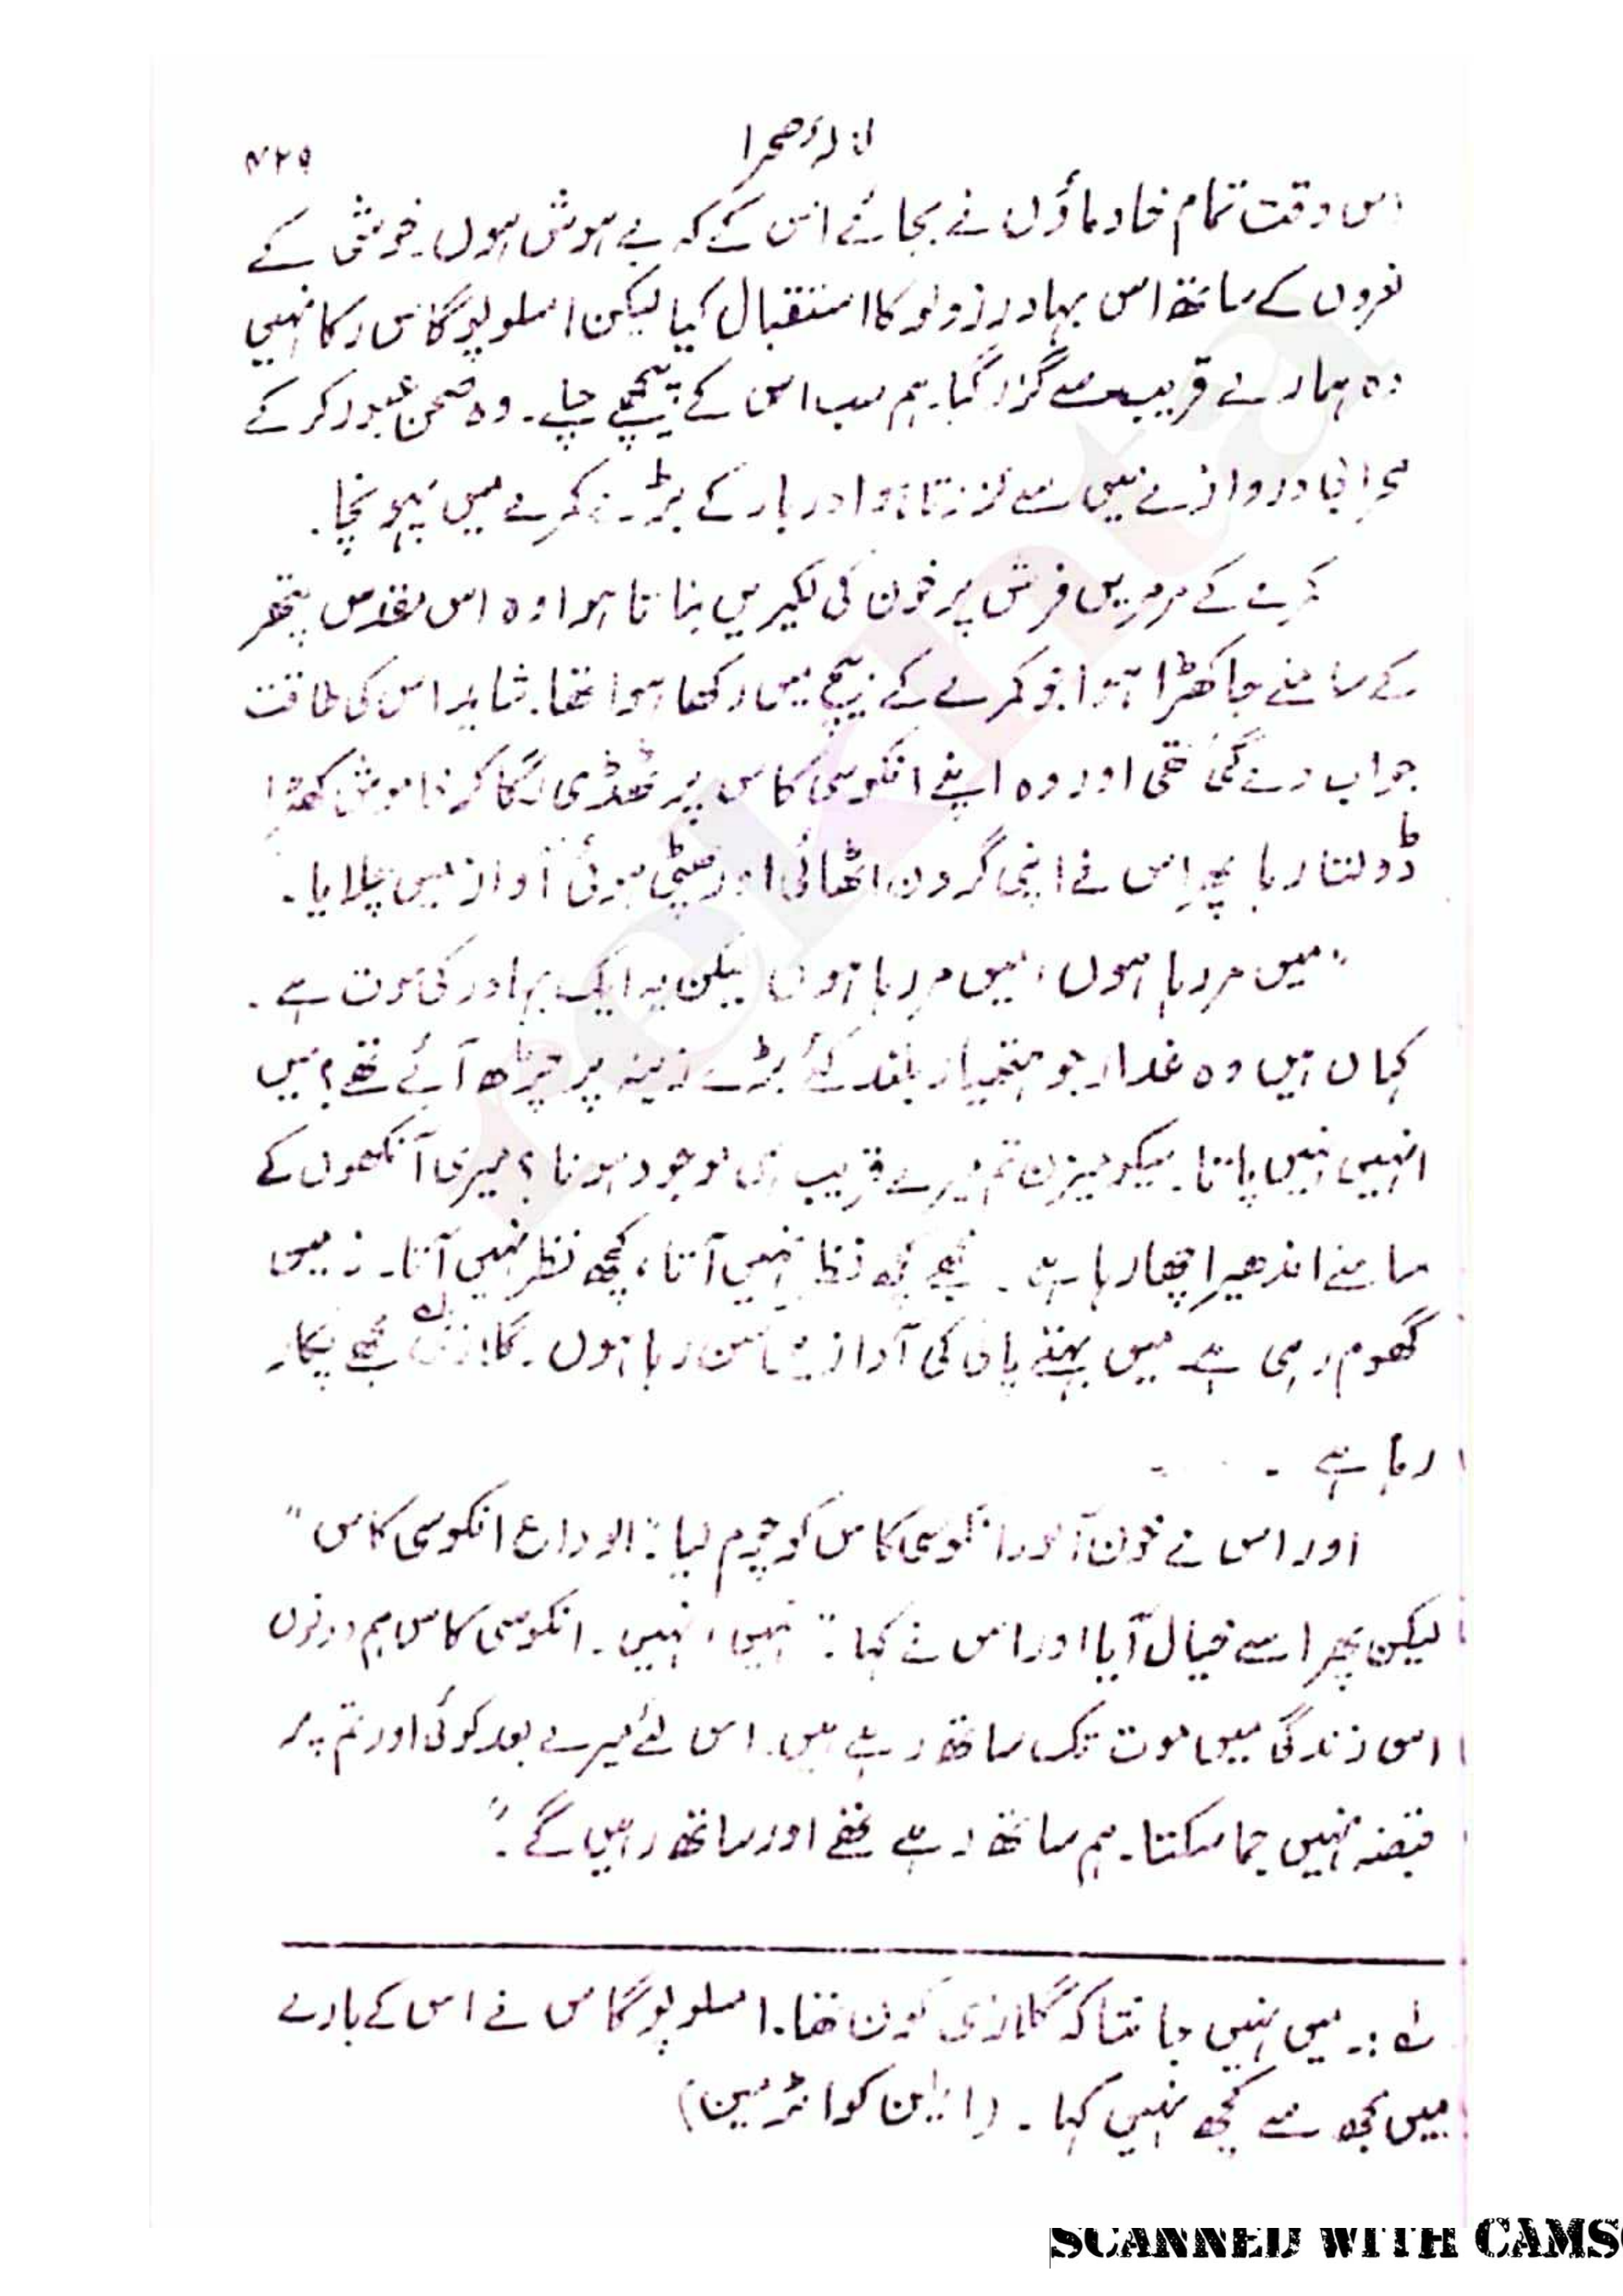 لالۂ صحرا
۴۲۵
اس وقت تمام خادماؤں نے بجائے اس کے کہ بے ہوش ہوں۔ خوشی کے
نعروں کے ساتھ اس بہادر زولو کا استقبال کیا لیکن املوپوگاس رکا نہیں
وہ ہمارے قریب سے گزر گیا۔ ہم سب اس کے پیچھے چلے۔ وہ صحن عبور کر کے
محرابی دروازے میں سے گزرتا ہوا دربار کے بڑے کمرے میں پہونچا۔
کمرے کے مرمریں فرش پر خون کی لکیریں بناتا ہوا وہ اس مقدس پتھر
کے سامنے جا کھڑا ہوا جو کمرے کے بیچ میں رکھا ہوا تھا۔ شاید اس کی طاقت
جواب دے گئی تھی اور وہ اپنے انکوسی کاس پر ٹھڈی لگا کر خاموش کھڑا
ڈولتا رہا پھر اس نے اپنی گردن اٹھائی اور پھٹی ہوئی آواز میں چلایا۔
"میں مر رہا ہوں، میں مر رہا ہوں لیکن یہ ایک بہادر کی موت ہے۔
کہاں ہیں وہ غدار جو ہتھیار بلند کئے بڑے زینہ پر چڑھ آئے تھے؟ میں
انہیں نہیں پاتا۔ میکومیزن تم میرے قریب ہی موجود ہونا؟ میری آنکھوں کے
سامنے اندھیرا چھا رہا ہے۔ مجھے کچھ نظر نہیں آتا، کچھ نظر نہیں آتا۔ زمین
گھوم رہی ہے میں بہتے پانی کی آوازیں سن رہا ہوں۔ گلازی لہ مجھے پکار
رہا ہے۔
اور اس نے خون آلود انکوسی کاس کو چوم لیا: "الوداع انکوسی کاس"
لیکن پھر اسے خیال آیا اور اس نے کہا۔ "نہیں، نہیں۔ انکوسی کاس ہم دونوں
اس زندگی میں موت تک ساتھ رہے ہیں۔ اس لئے میرے بعد کوئی اور تم پر
قبضہ نہیں جما سکتا۔ ہم ساتھ رہے تھے اور ساتھ رہیں گے۔"
لہ :۔ میں نہیں جانتا کہ گلازی کون تھا۔ املوپوگاس نے اس کے بارے
میں مجھ سے کچھ نہیں کہا۔ (ایلن کواٹرمین)
rekhta
SCANNED WITH CAMS